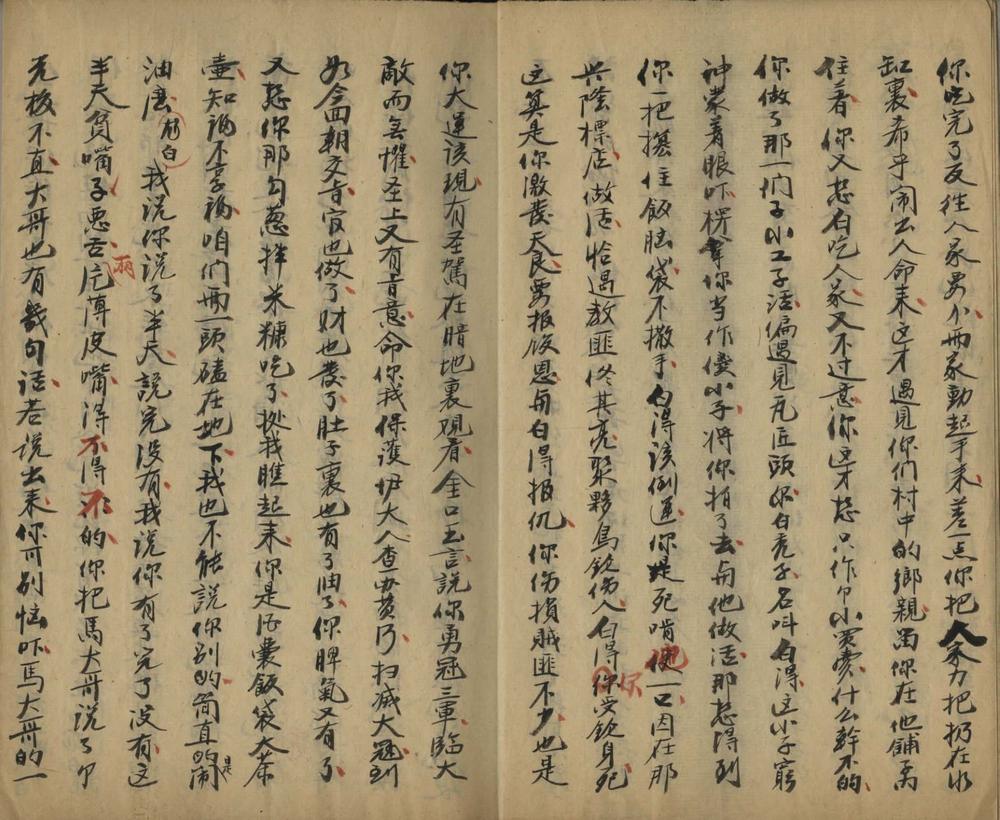 你吃完了反往人家要水兩家動起手來差一点你把人家力把扔在水
缸裏希乎闹出人命来这才遇見你们村中的鄉親留你在他鋪子
住着你又想白吃人家又不过意你这才想只作個小買賣什么幹不的
你做了那一们子小工子活偏遇見瓦匠頭你白秃子名叫白得这小子窮
神蒙着眼吓楞拿你当作傻小子将你拍了去与他做活那想得到
你一把攥住飯脑袋不撒手白得該倒運你是死啃一口因在那
興隆標店做活恰遇教匪佟其亮聚夥鳥鈫伤人白得你受鈫身死
这算是你激發天良要报飯恩与白得报仇你伤損贼匪不少也是
你大運該現有圣駕在暗地裏观看金口玉言說你勇冠三軍臨大
敵而無惧圣上又有旨意命你我保護大人查办黄河扫滅大冦到
如今回朝交旨官也做了财也發了肚子裏也有了油了你脾氣又有了
又想你那勾葱拌米糠吃了挨我瞧起来你是酒囊飯袋大茶
壺知福不享福咱们兩頭磕在地下我也不能說你别的简直的是闹
油唐白我说你说了半天說完没有我说你有了完了没有这
半天貧嘴子悪舌兩片薄皮嘴得不得不的你把馬大哥说了个
无核不直大哥也有幾句话若说出来你可别恼吓馬大哥的一